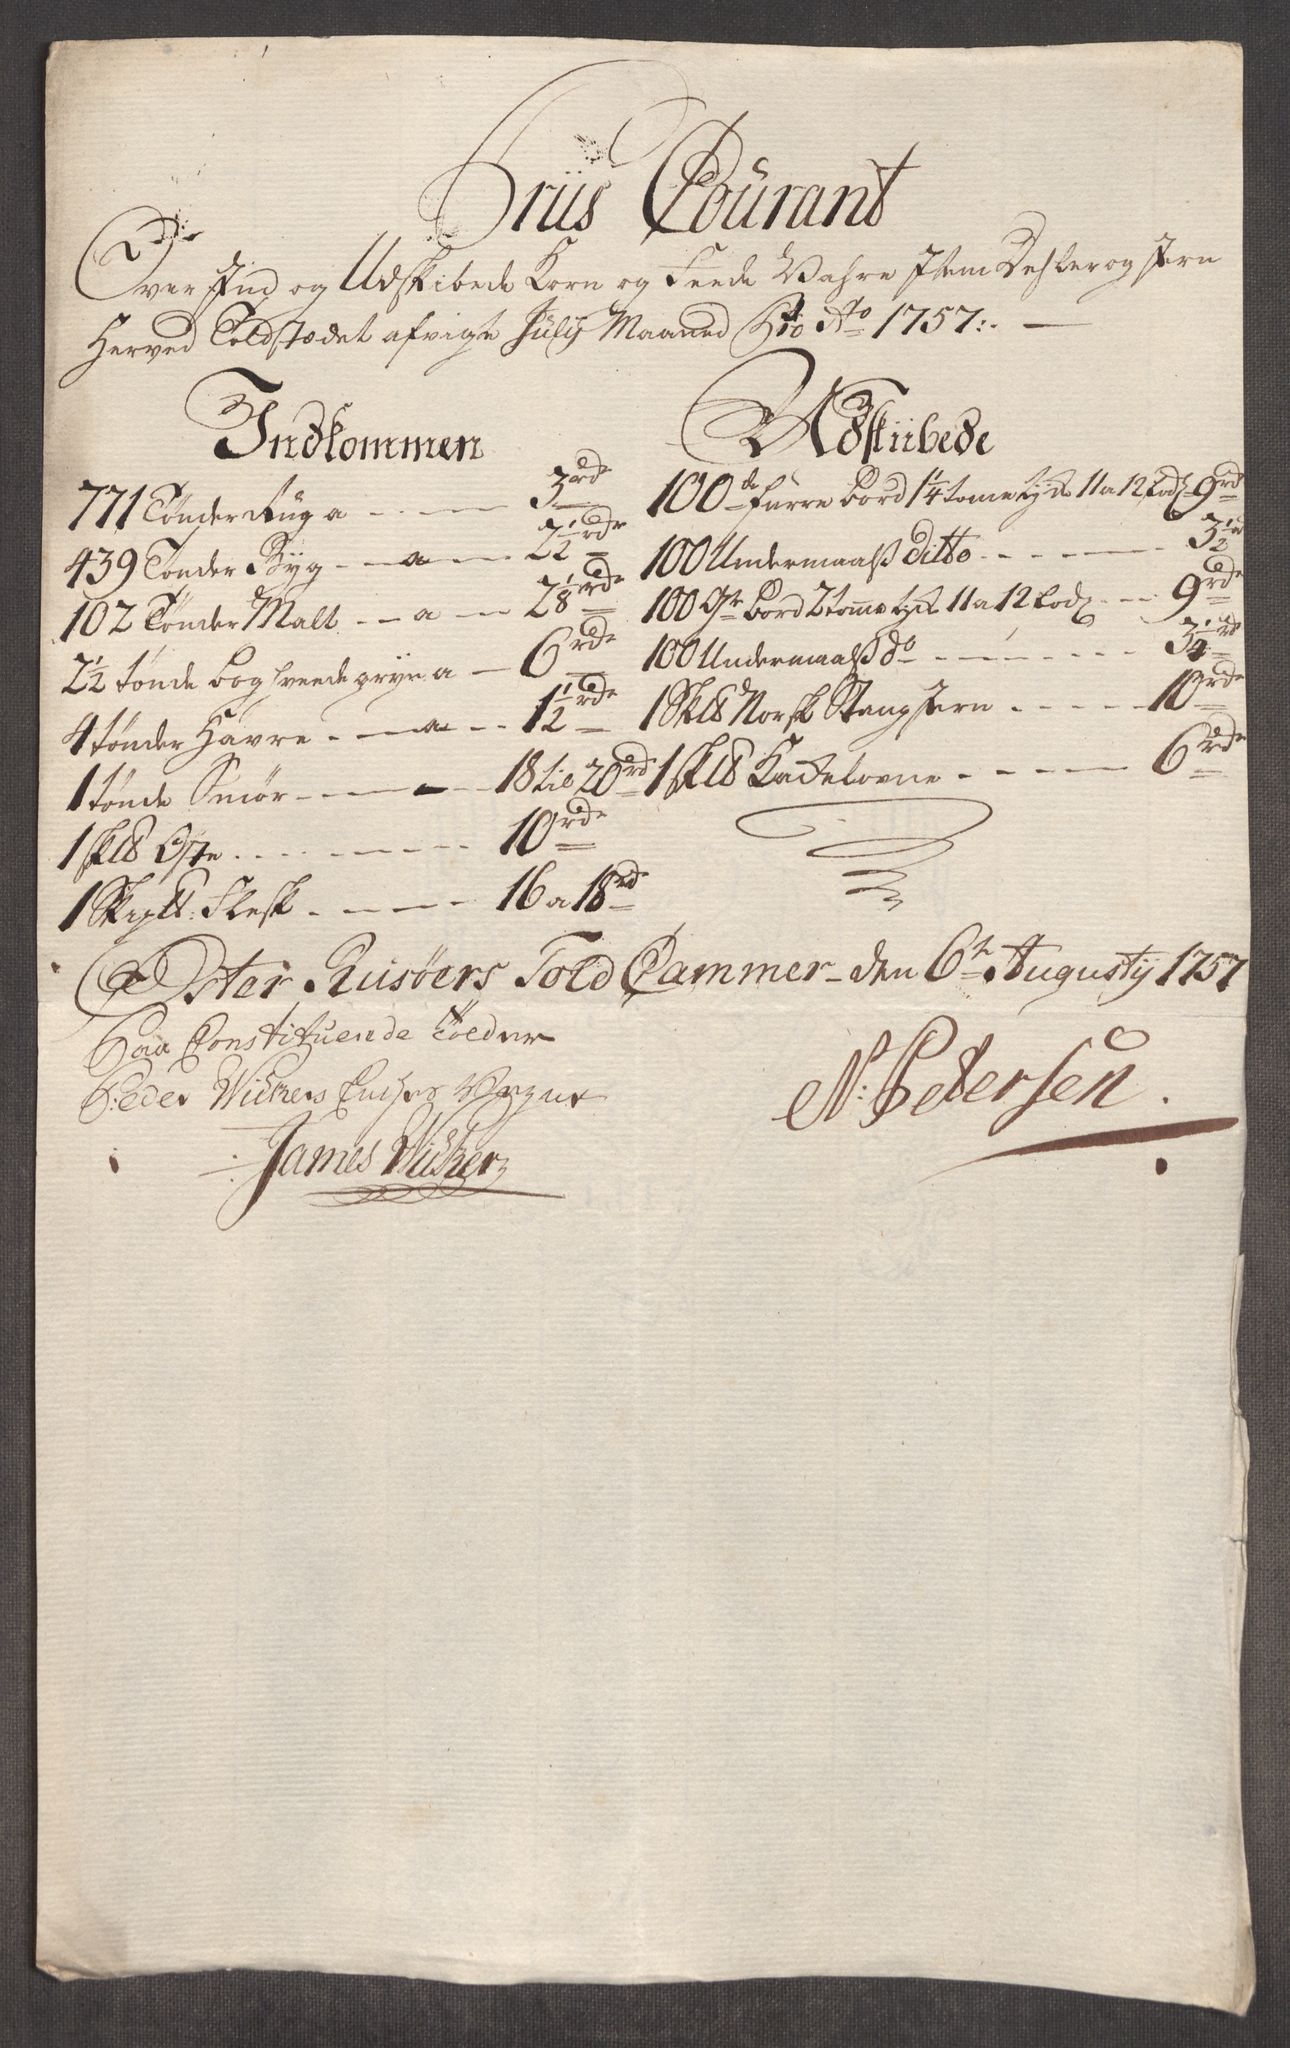 Priis Courant
Over Ind og Udskibede Korn og Feede Vahre Item Dehler og Jern
Herved Toldstædet afvigte July Maaned Pro Ao 1757:
Indkommen
771 Tønder Rug a 3 rde
439 Tønder Byg a 2 1/2 rdr
102 Tønder Malt a 2 1/8 rde
2 1/2 tønde boghveede gryn a 6 rde
4 tønder Havre a 1 1/2 rde
1 tønde Smør 18 til 20 rd
1 sk℔ Oste 10 rde
1 Skip℔: Flesk 16 a 18 rd
Udskibede
100de furre bord 1 1/4 tome tyk 11 a 12 fod 9 rd
100 Undermaalß Ditto 3 1/2 rd
100 Gr Bord 2 tomme tyk 11 a 12 fod 9 rde
100 Undermaalß do 3 1/4 rd
1 Sk℔ Norsk Stang Jern 10 rde
1 sk℔ Kackelovne 6 rde
Oster Riisöers Told Cammer den 6te Augustij 1757
Paa Constituerede Tolder
Peder Wickers Vegne
James Wicker
N: Petersen.